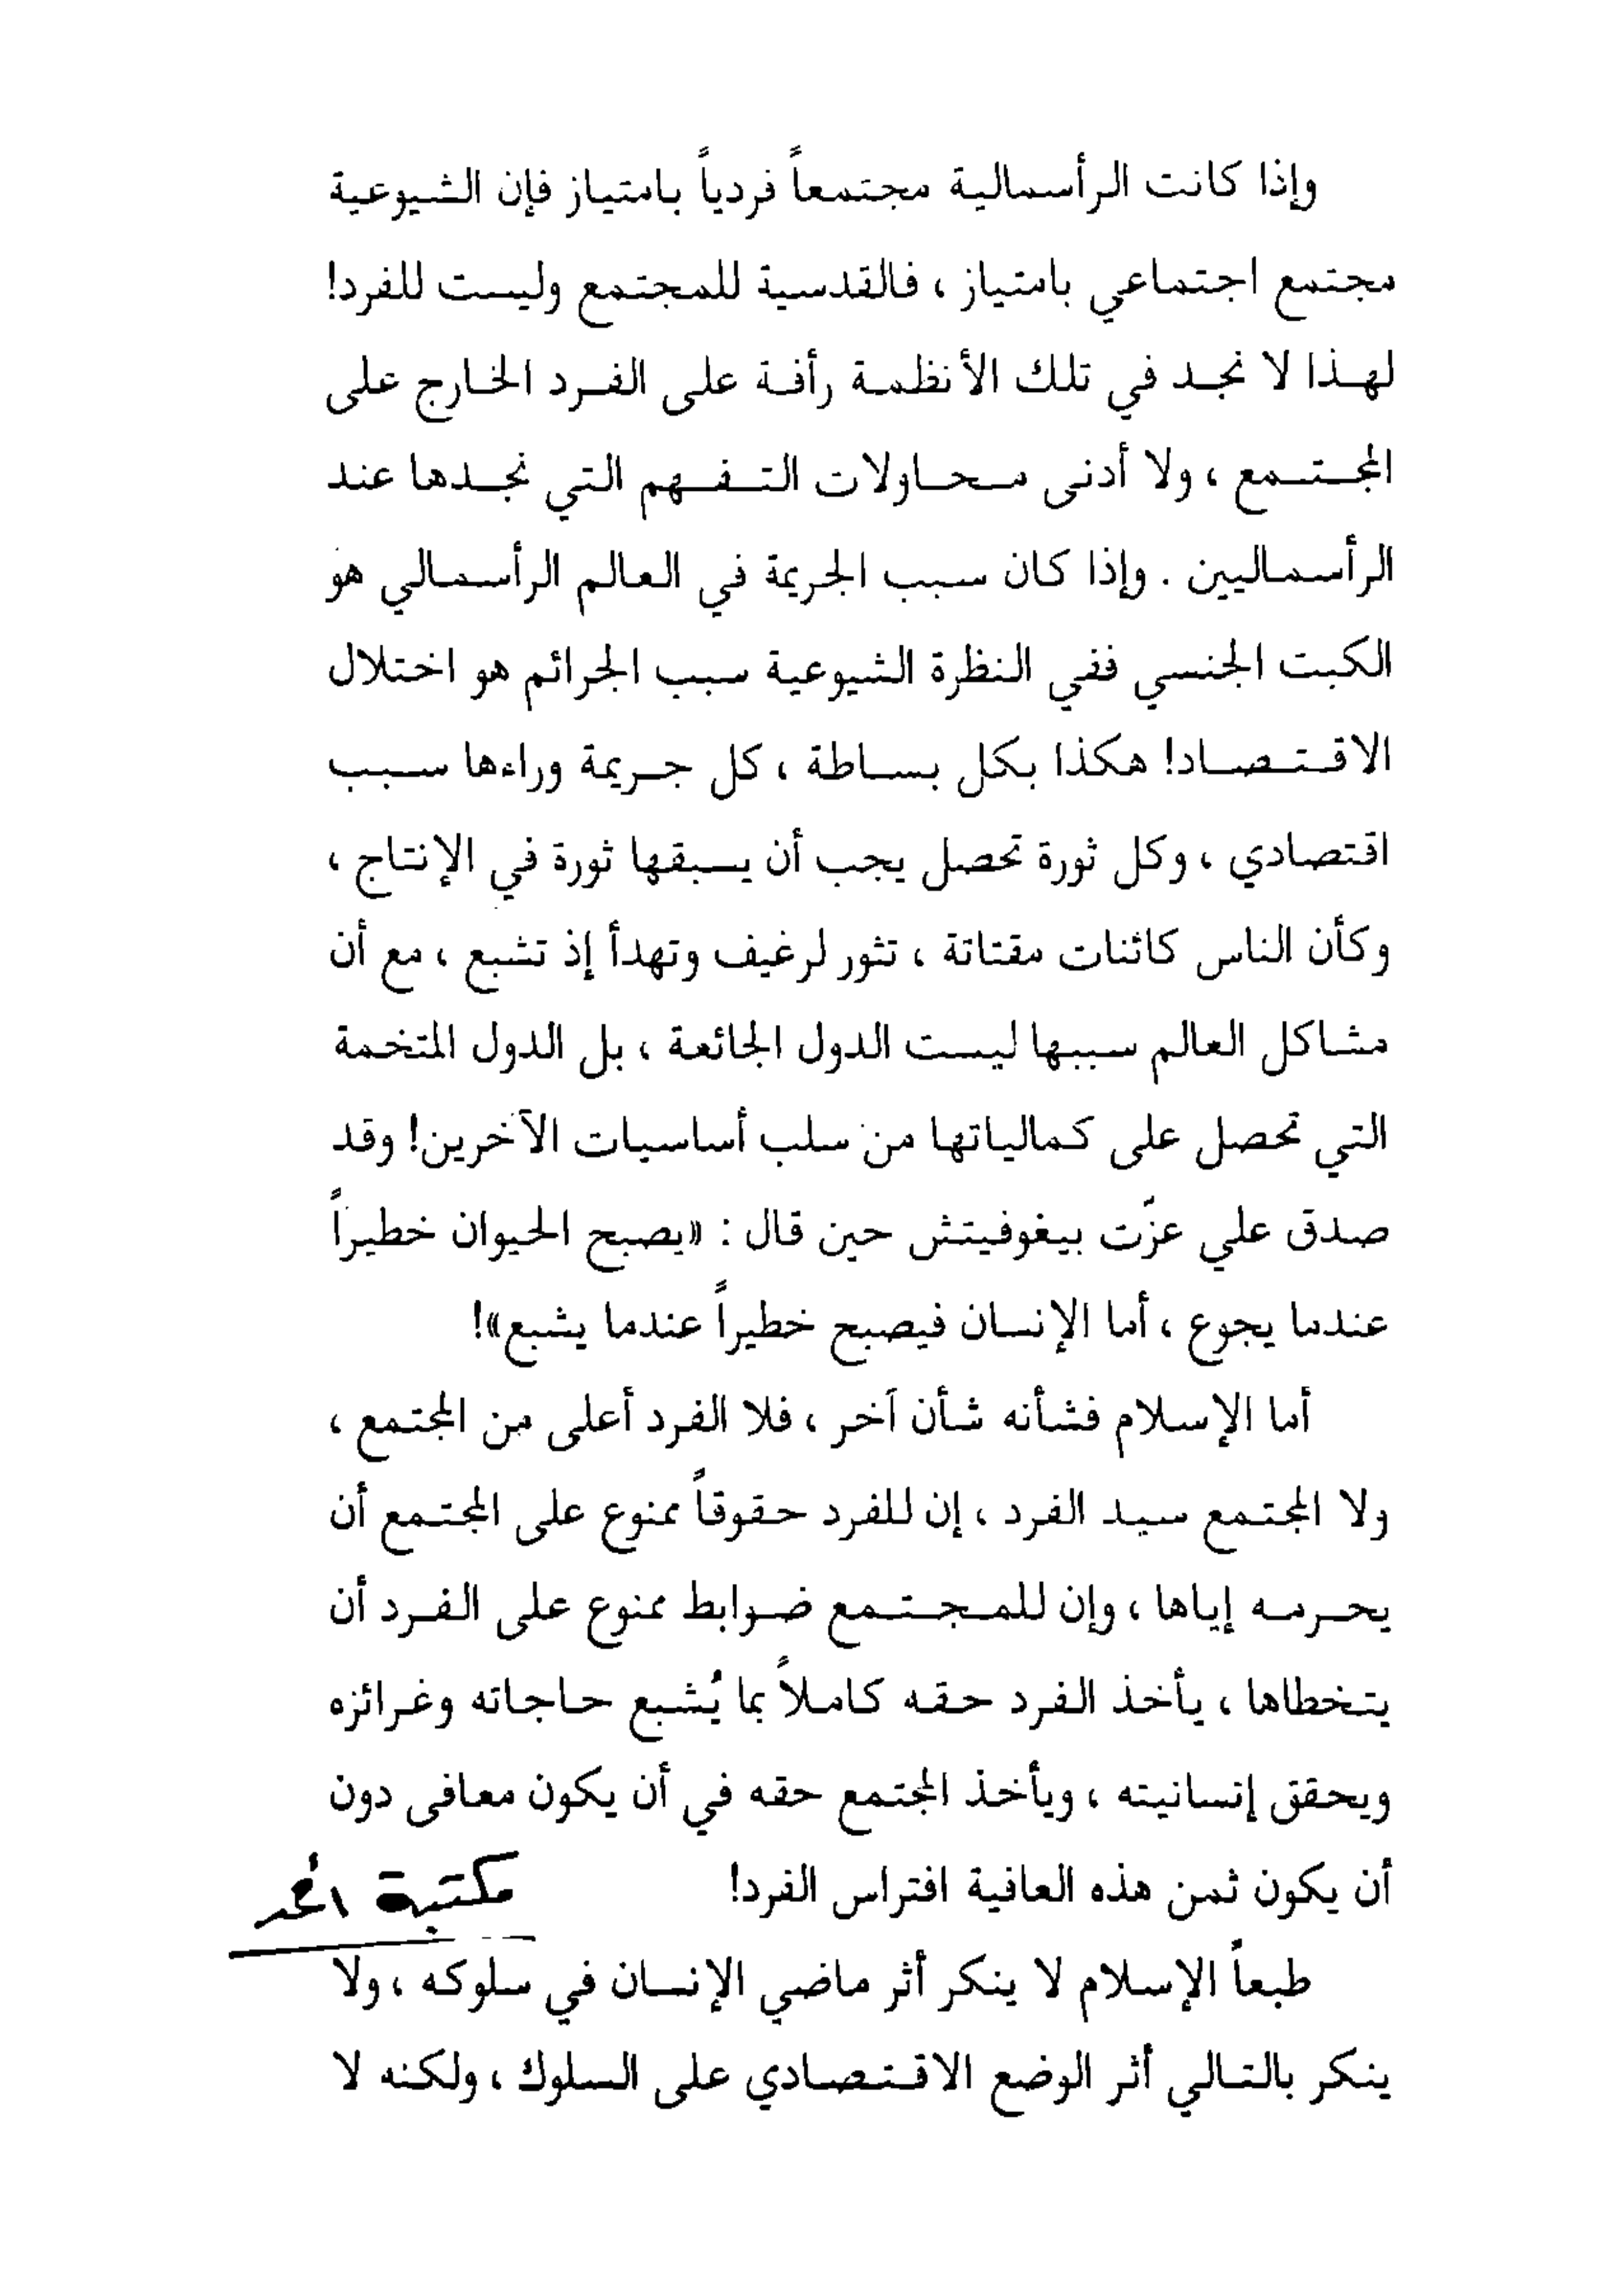 وإذا كانت الرأسمالية مجتمعاً فردياً بامتياز فإن الشيوعية
مجتمع اجتماعي بامتياز ، فالقدسية للمجتمع وليست للفرد!
لهذا لا نجد في تلك الأنظمة رأفة على الفرد الخارج على
المجتمع ، ولا أدنى محاولات التفهم التي نجدها عند
الرأسماليين . وإذا كان سبب الجريمة في العالم الرأسمالي هو
الكبت الجنسي ففي النظرة الشيوعية سبب الجرائم هو اختلال
الاقتصاد! هكذا بكل بساطة ، كل جريمة وراءها سبب
اقتصادي ، وكل ثورة تحصل يجب أن يسبقها ثورة في الإنتاج ،
وكأن الناس كائنات مقتاتة ، تثور لرغيف وتهدأ إذ تشبع ، مع أن
مشاكل العالم سببها ليست الدول الجائعة ، بل الدول المتخمة
التي تحصل على كمالياتها من سلب أساسيات الآخرين! وقد
صدق علي عزّت بيغوفيتش حين قال : «يصبح الحيوان خطيراً
عندما يجوع ، أما الإنسان فيصبح خطيراً عندما يشبع»!
أما الإسلام فشأنه شأن آخر ، فلا الفرد أعلى من المجتمع ،
ولا المجتمع سيد الفرد ، إن للفرد حقوقاً ممنوع على المجتمع أن
يحرمه إياها ، وإن للمجتمع ضوابط ممنوع على الفرد أن
يتخطاها ، يأخذ الفرد حقه كاملاً بما يُشبع حاجاته وغرائزه
ويحقق إنسانيته ، ويأخذ المجتمع حقه في أن يكون معافى دون
أن يكون ثمن هذه العافية افتراس الفرد!
مكتبة
طبعاً الإسلام لا ينكر أثر ماضي الإنسان في سلوكه ، ولا
ينكر بالتالي أثر الوضع الاقتصادي على السلوك ، ولكنه لا